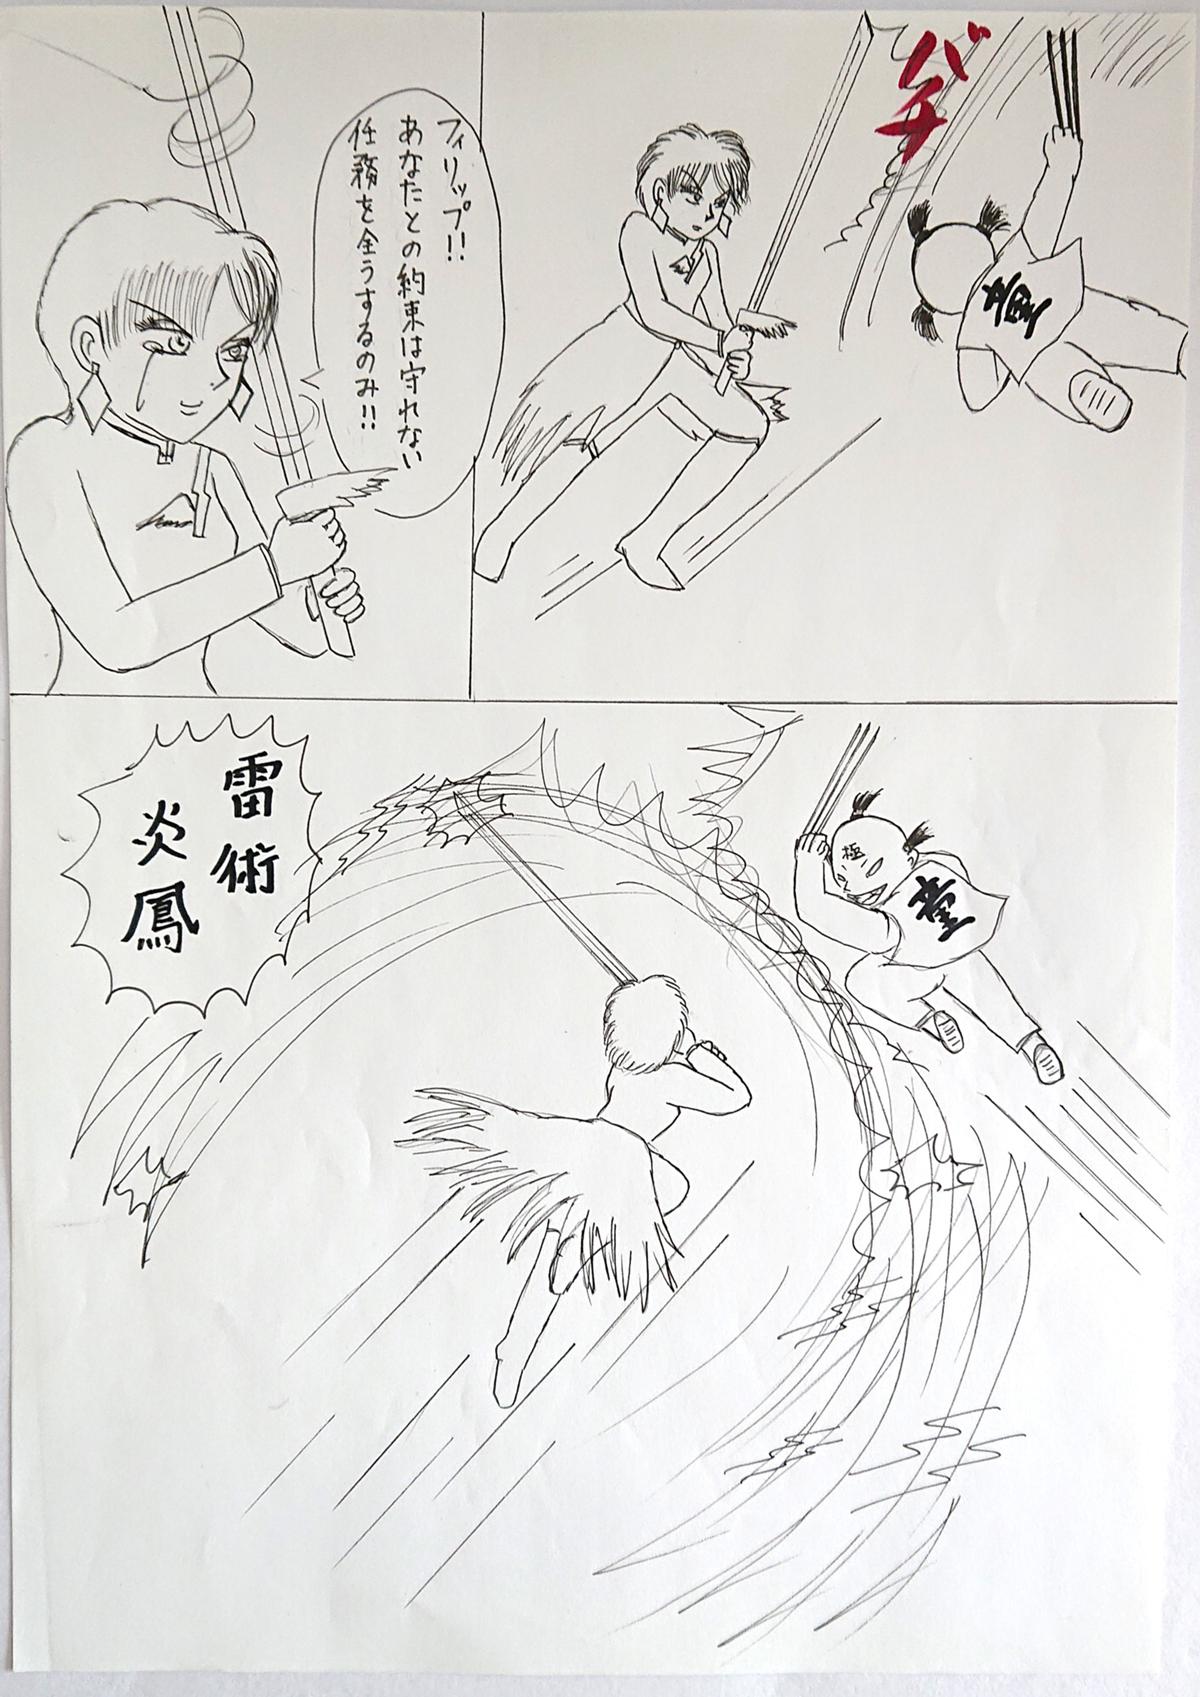 バチ
童
フィリップ!!
あなたとの約束は守れない
任務を全うするのみ!!
極
童
雷術
炎鳳